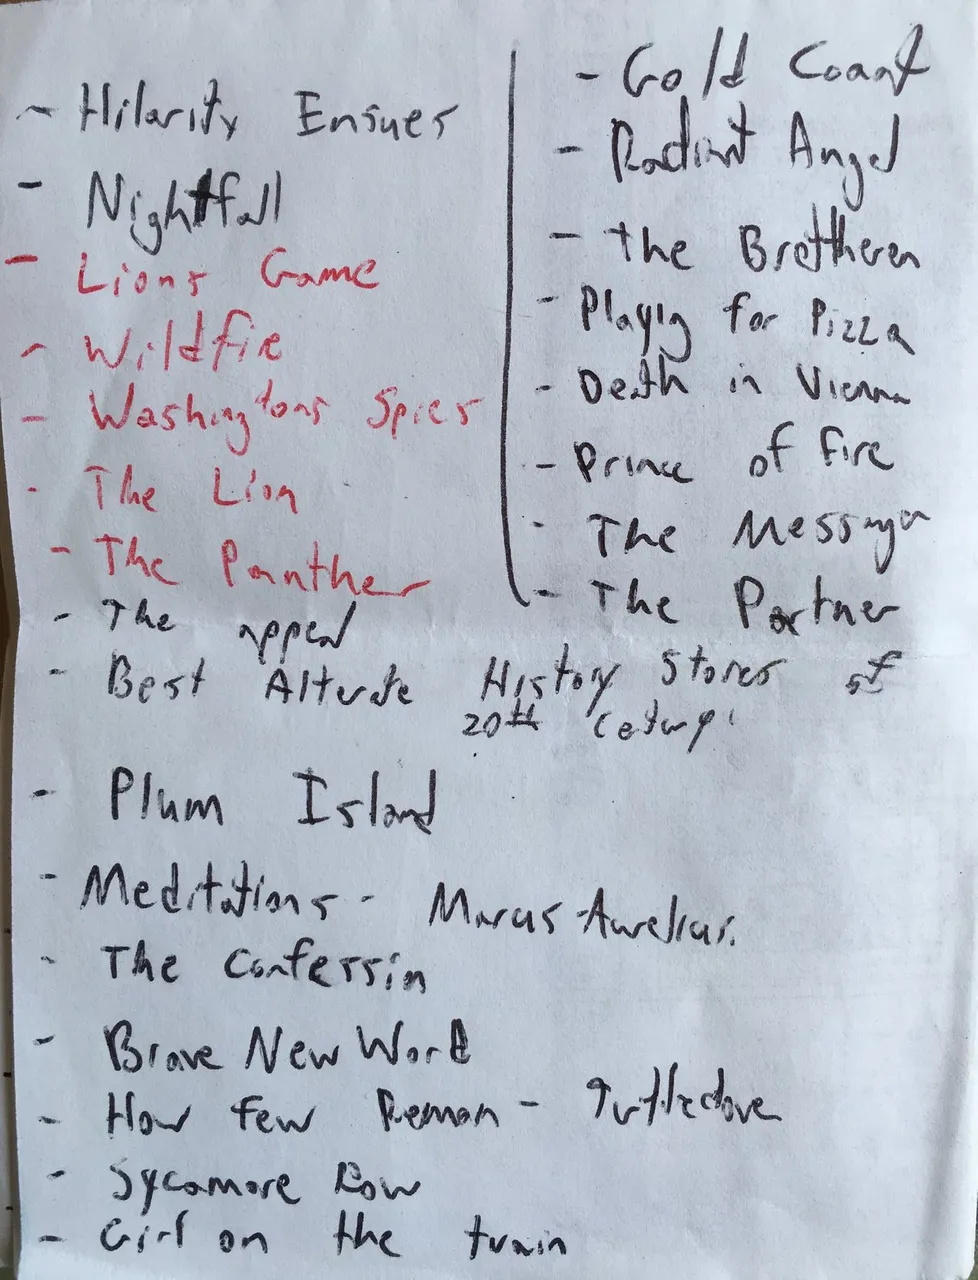 - Hilarity Ensues
- Nightfall
- Lions Game
- Wildfire
- Washingtons Spies
- The Lion
- The Panther
- The appeal
- Best Alternate History Stories of
20th Century
- Plum Island
- Meditations - Marcus Aurelius.
- The Confession
- Brave New World
- How Few Remain - Turtledove
- Sycamore Row
- Girl on the train
- Gold Coast
- Radiant Angel
- The Bretheren
- Playing for Pizza
- Death in Vienna
- Prince of Fire
- The Messenger
- The Partner